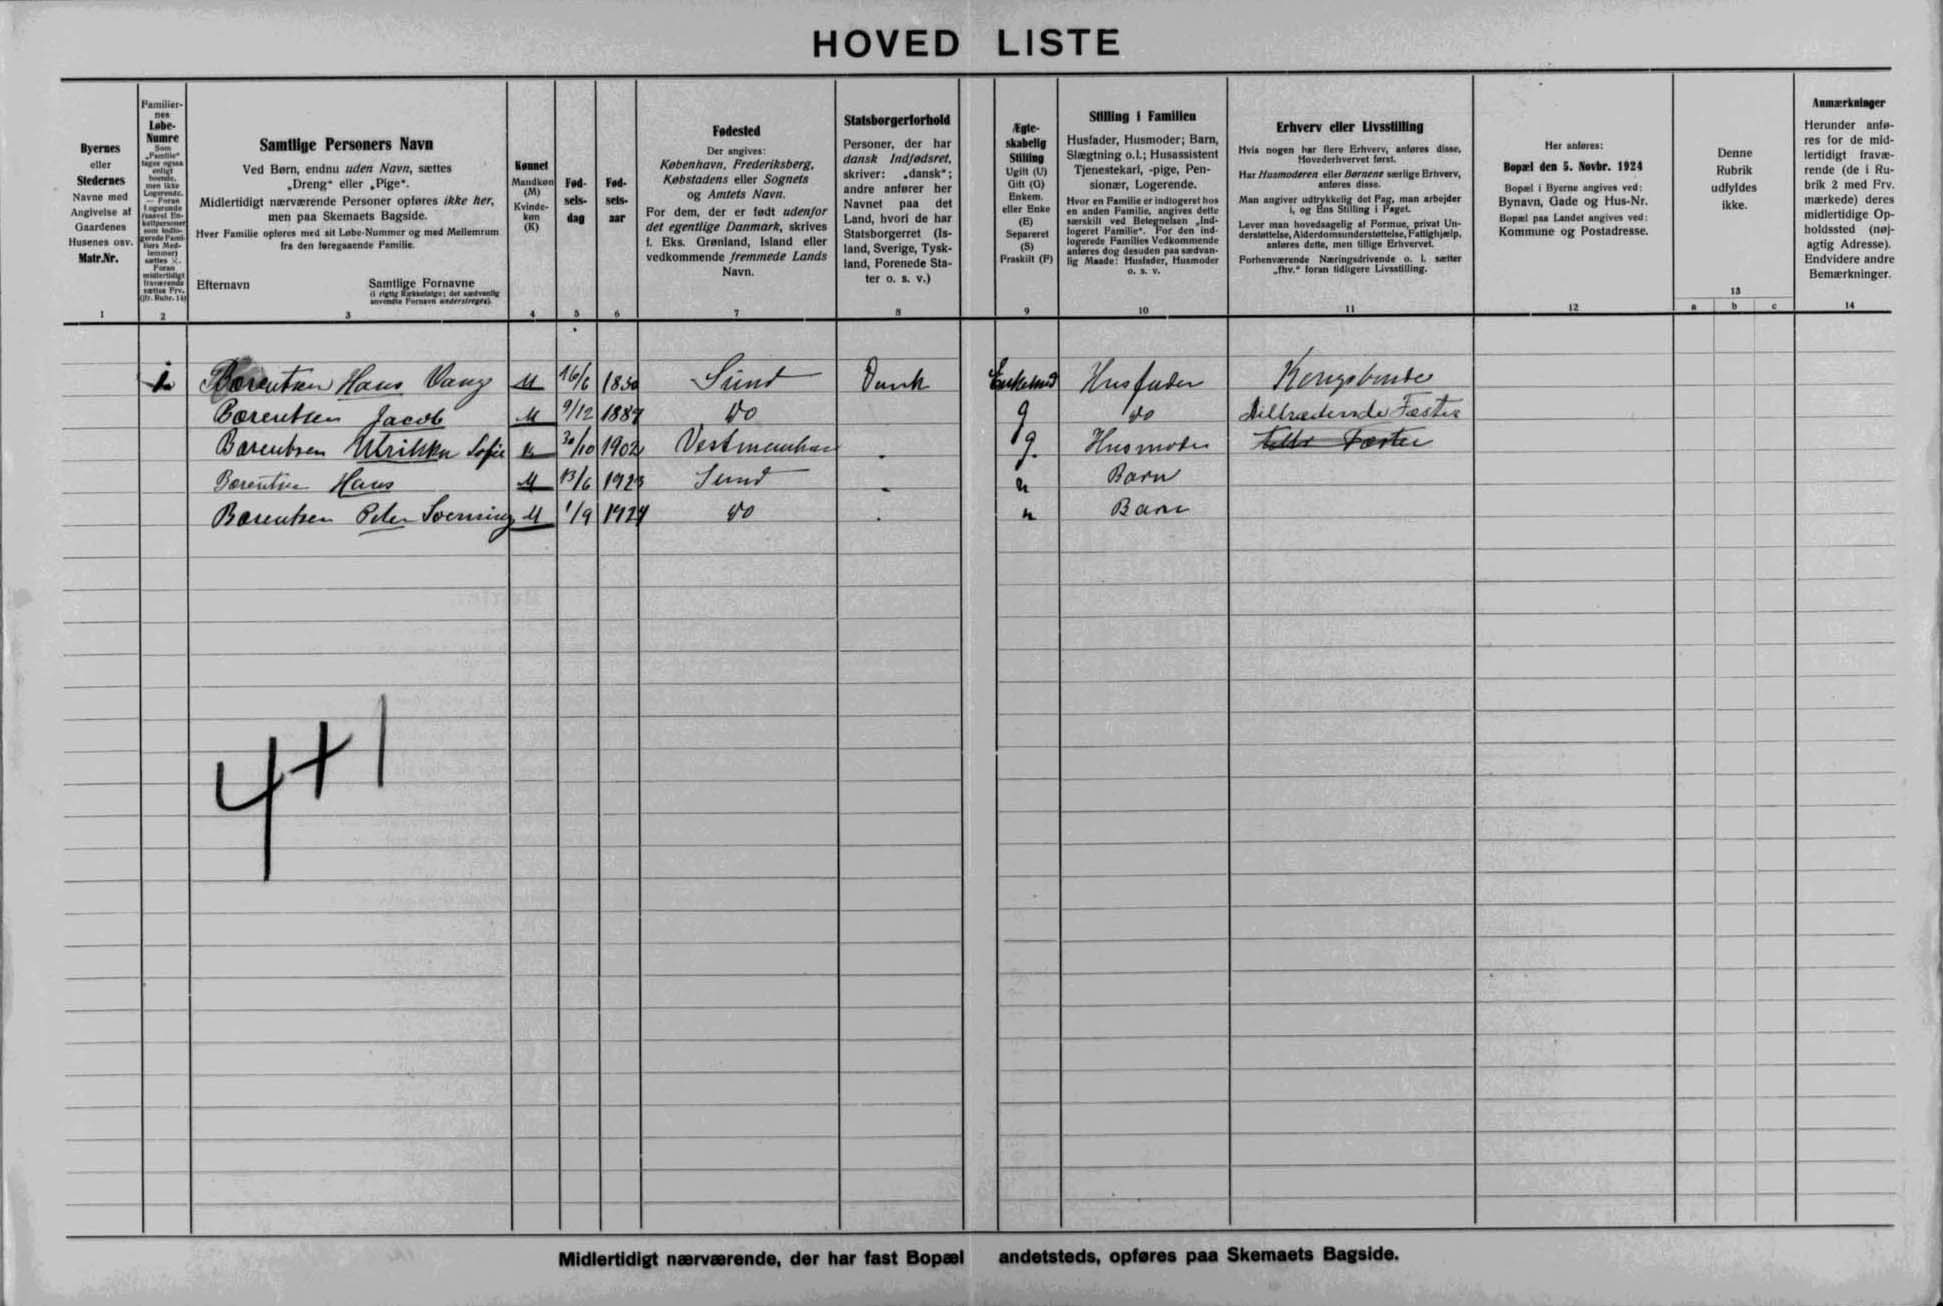 HOVED LISTE
Byernes
eller
Stedernes
Navne med
Angivelse af
Gaardenes
Husenes osv.
Matr.Nr.
1
Familier-
nes
Løbe-
Numre
Som
„Familie“
tages ogsaa
enligt
boende,
men ikke
Logerende.
— Foran
Logerende
(saavel En-
keltpersoner
som indlo-
gerede Fami-
liers Med-
lemmer)
sættes ×.
Foran
midlertidigt
fraværende
sættes Frv.
(jfr. Rubr. 14)
2
Samtlige Personers Navn
Ved Børn, endnu uden Navn, sættes
„Dreng“ eller „Pige“.
Midlertidigt nærværende Personer opføres ikke her,
men paa Skemaets Bagside.
Hver Familie opføres med sit Løbe-Nummer og med Mellemrum
fra den føregaaende Familie.
Efternavn Samtlige Fornavne
(i rigtig Rækkefølge; det sædvanlig
anvendte Fornavn understreges).
3
Kønnet
Mandkøn
(M)
Kvinde-
køn
(K)
4
Fød-
sels-
dag
5
Fød-
sels-
aar
6
Fødested
Der angives:
København, Frederiksberg,
Købstadens eller Sognets
og Amtets Navn.
For dem, der er født udenfor
det egentlige Danmark, skrives
f. Eks. Grønland, Island eller
vedkommende fremmede Lands
Navn.
7
Statsborgerforhold
Personer, der har
dansk Indfødsret,
skriver: „dansk“;
andre anfører her
Navnet paa det
Land, hvori de har
Statsborgerret (Is-
land, Sverige, Tysk-
land, Forenede Sta-
ter o. s. v.)
8
Ægte-
skabelig
Stilling
Ugift (U)
Gift (G)
Enkem.
eller Enke
(E)
Separeret
(S)
Fraskilt (F)
9
Stilling i Familien
Husfader, Husmoder; Barn,
Slægtning o.l.; Husassistent
Tjenestekarl, -pige, Pen-
sionær, Logerende.
Hvor en Familie er indlogeret hos
en anden Familie, angives dette
særskilt ved Betegnelsen „Ind-
logeret Familie“. For den ind-
logerede Families Vedkommende
anføres dog desuden paa sædvan-
lig Maade: Husfader, Husmoder
o. s. v.
10
Erhverv eller Livsstilling
Hvis nogen har flere Erhverv, anføres disse,
Hovederhvervet først.
Har Husmoderen eller Børnene særlige Erhverv,
anføres disse.
Man angiver udtrykkelig det Fag, man arbejder
i, og Ens Stilling i Faget.
Lever man hovedsagelig af Formue, privat Un-
derstøttelse, Alderdomsunderstøttelse, Fattighjælp,
anføres dette, men tillige Erhvervet.
Forhenværende Næringsdrivende o. l. sætter
„fhv.“ foran tidligere Livsstilling.
11
Her anføres:
Bopæl den 5. Novbr. 1924
Bopæl i Byerne angives ved:
Bynavn, Gade og Hus-Nr.
Bopæl paa Landet angives ved:
Kommune og Postadresse.
12
Denne
Rubrik
udfyldes
ikke.
13
a b c
Anmærkninger
Herunder anfø-
res for de mid-
lertidigt fravæ-
rende (de i Ru-
brik 2 med Frv.
mærkede) deres
midlertidige Op-
holdssted (nøj-
agtig Adresse).
Endvidere andre
Bemærkninger.
14
Bærentsen Hans Vang M 16/6 1850 Sund Dansk Enkemand Husfader Kongsbonde
Bærentsen Jacob M 9/12 1889 do g do Tiltrædende Fæster
Bærentsen Ulrikka Sofie K 30/10 1902 Vestmanhavn g. Husmoder Fæster
Bærentsen Hans M 13/6 1923 Sund u Barn
Bærentsen Peter Svenning M 1/9 1924 do u Barn
4+1
Midlertidigt nærværende, der har fast Bopæl andetsteds, opføres paa Skemaets Bagside.